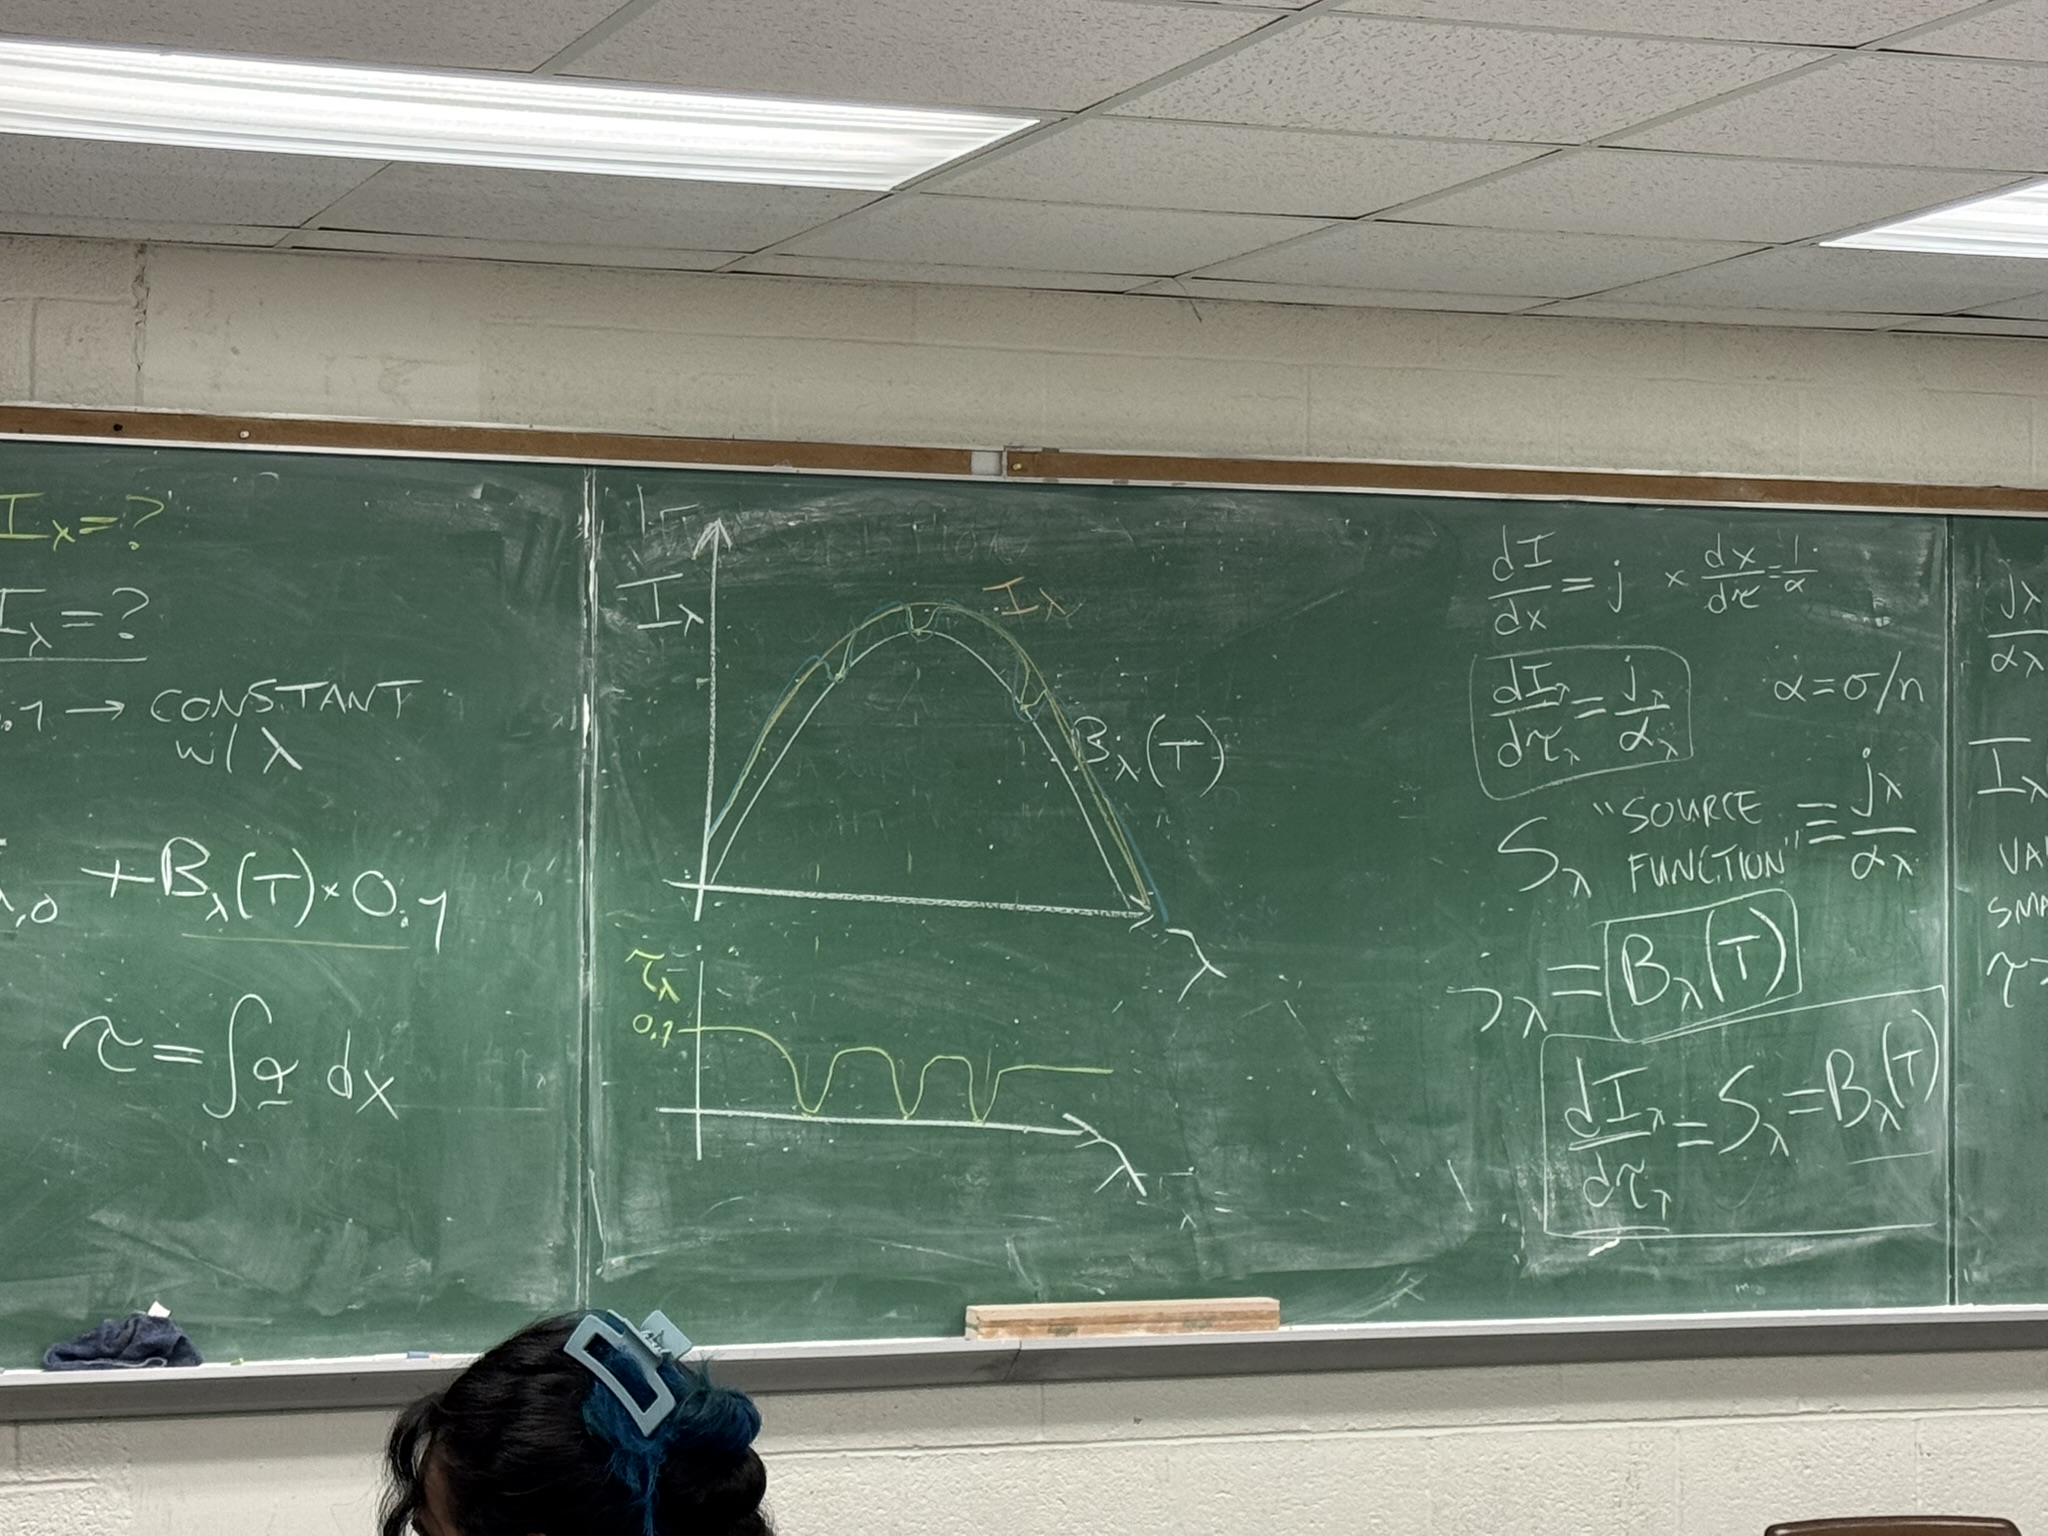 I_λ=?
I_λ=?
.1 → CONSTANT
w/ λ
λ,0 + B_λ(T) × 0.1
τ = ∫ α dx
I_λ
I_λ
B_λ(T)
λ
τ_λ
0.1
λ
dI/dx = j × dx/dτ = 1/α
dI_λ/dτ_λ = j_λ/α_λ
α = σ/n
S_λ "SOURCE FUNCTION" ≡ j_λ/α_λ
S_λ = B_λ(T)
dI_λ/dτ_T = S_λ = B_λ(T)
j_λ
α_λ
I_λ
VA
SMA
τ